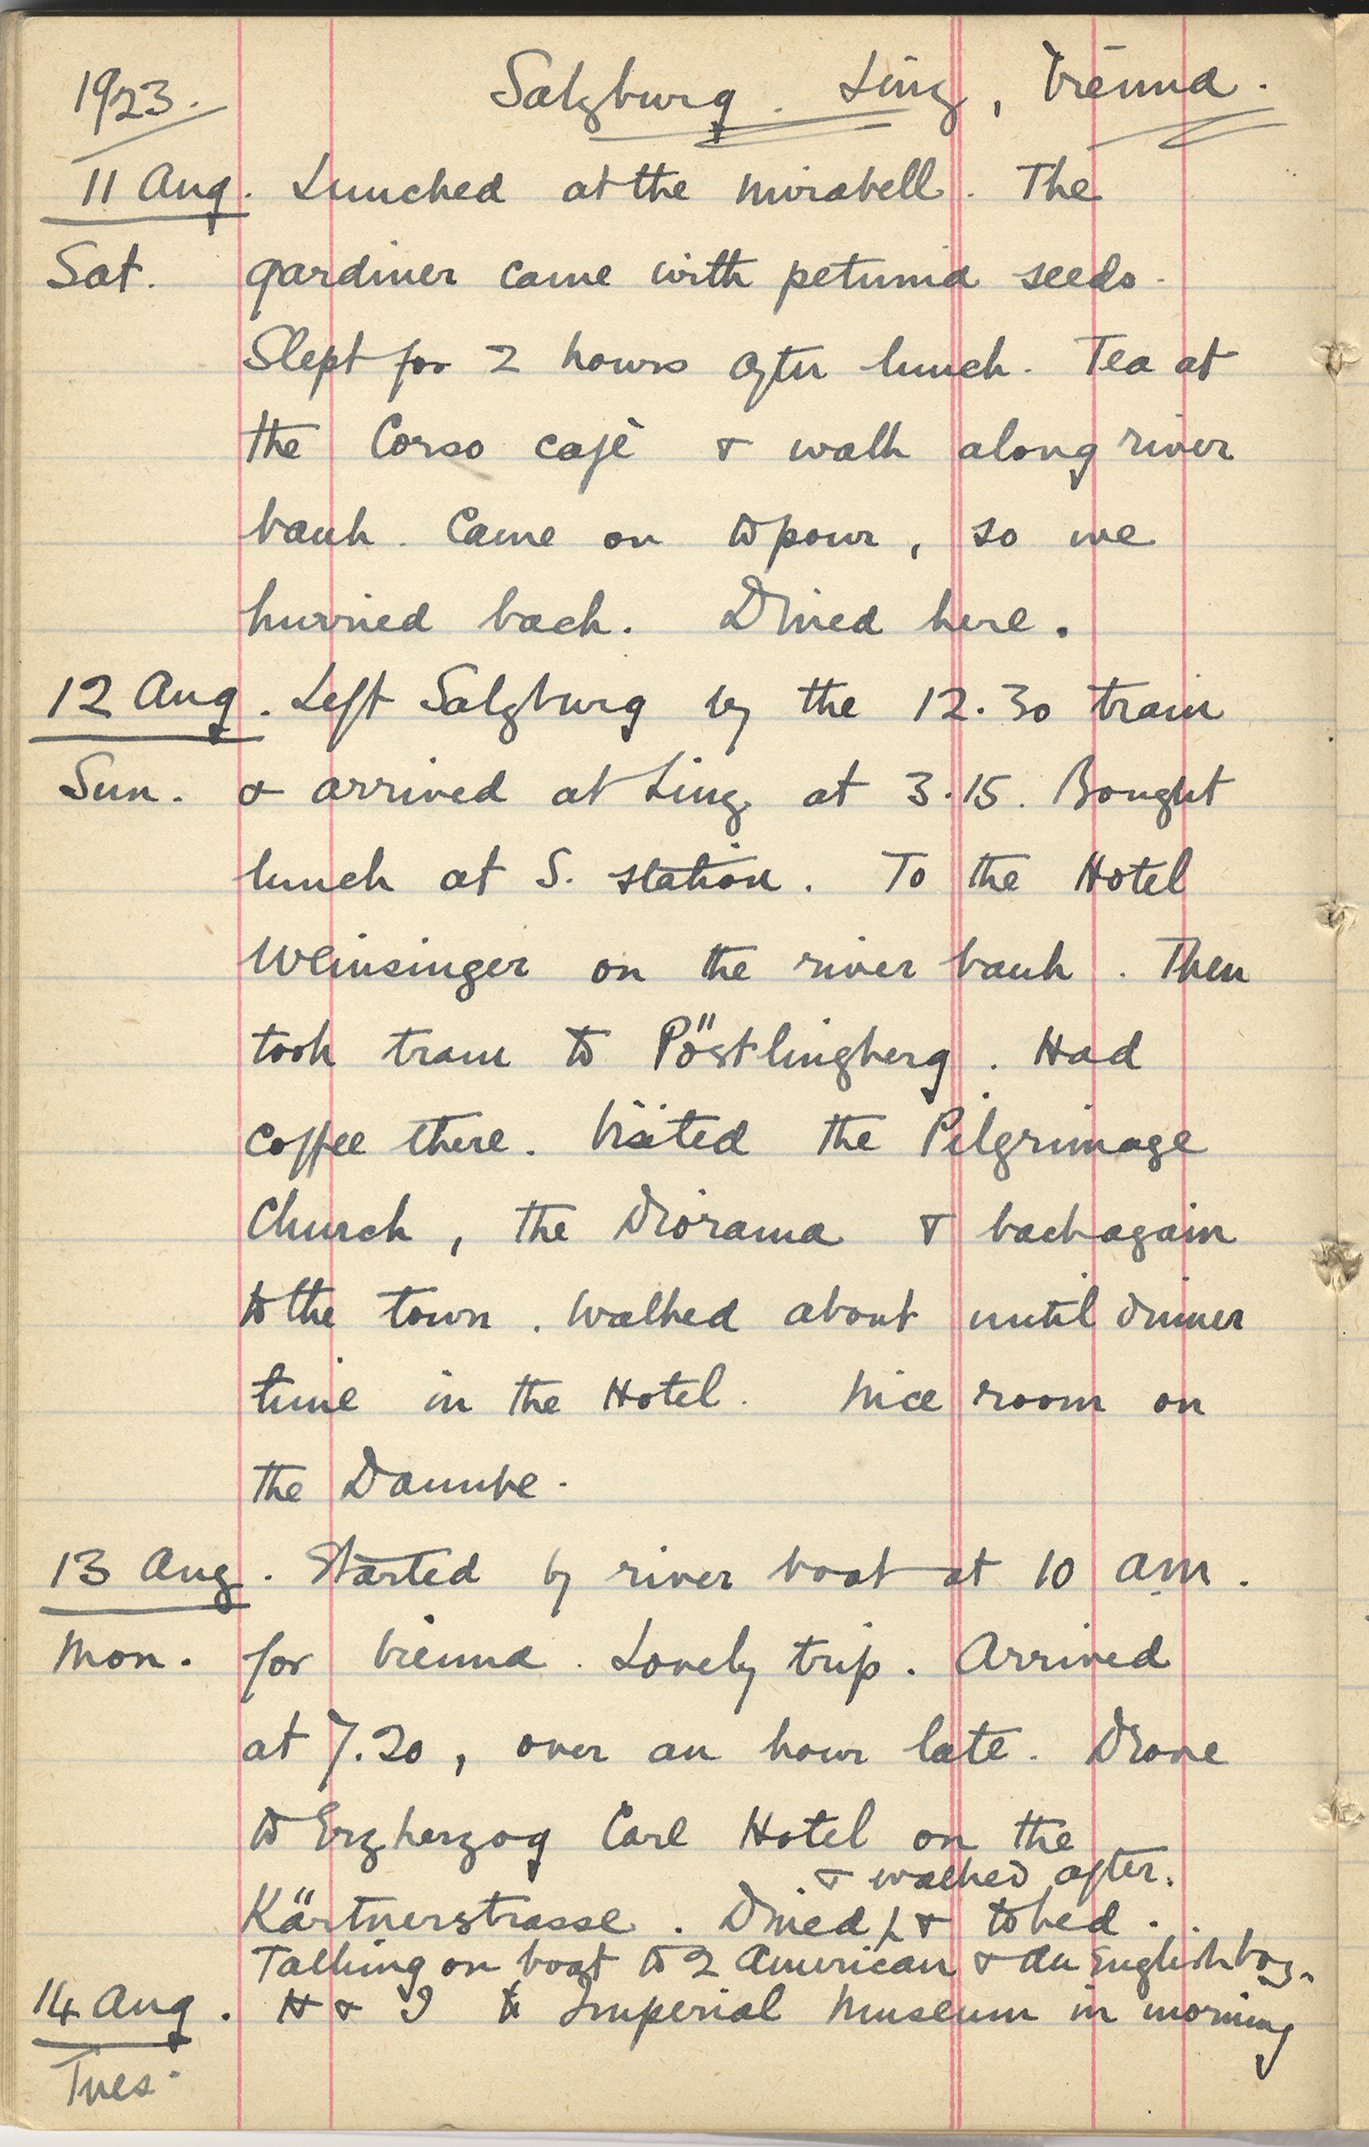 1923. Salzburg. Linz, Vienna.
11 Aug. Lunched at the Mirabell. The
Sat. gardiner came with petunia seeds.
Slept for 2 hours after lunch. Tea at
the Corso café & walk along river
bank. Came on to pour, so we
hurried back. Dined here.
12 Aug. Left Salzburg by the 12.30 train
Sun. & arrived at Linz at 3.15. Bought
lunch at S. station. To the Hotel
Weinsinger on the river bank. Then
took tram to Pöstlingberg. Had
coffee there. Visited the Pilgrimage
Church, the Diorama & back again
to the town. Walked about until dinner
time in the Hotel. Nice room on
the Danube.
13 Aug. Started by river boat at 10 am.
Mon. for Vienna. Lovely trip. Arrived
at 7.20, over an hour late. Drove
to Erzherzog Carl Hotel on the
& walked after.
Kärtnerstrasse. Dined, & to bed.
Talking on boat to 2 American & an English boy.
14 Aug. H & I to Imperial Museum in morning
Tues.